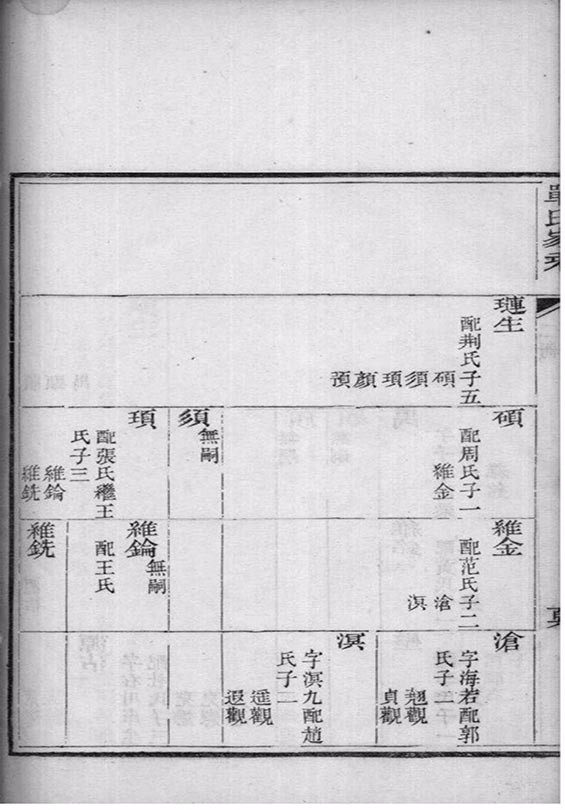 單氏家乘
璉生
配荆氏子五
碩
須
頊
顏
預
碩
配周氏子一
維金
須
無嗣
頊
配張氏繼王
氏子三
維錀
維銑
維金
配范氏子二
滄
溟
維錀
無嗣
配王氏
維銑
滄
字海若配郭
氏子二
翘觀
貞觀
溟
字溟九配趙
氏子二
遥觀
遐觀